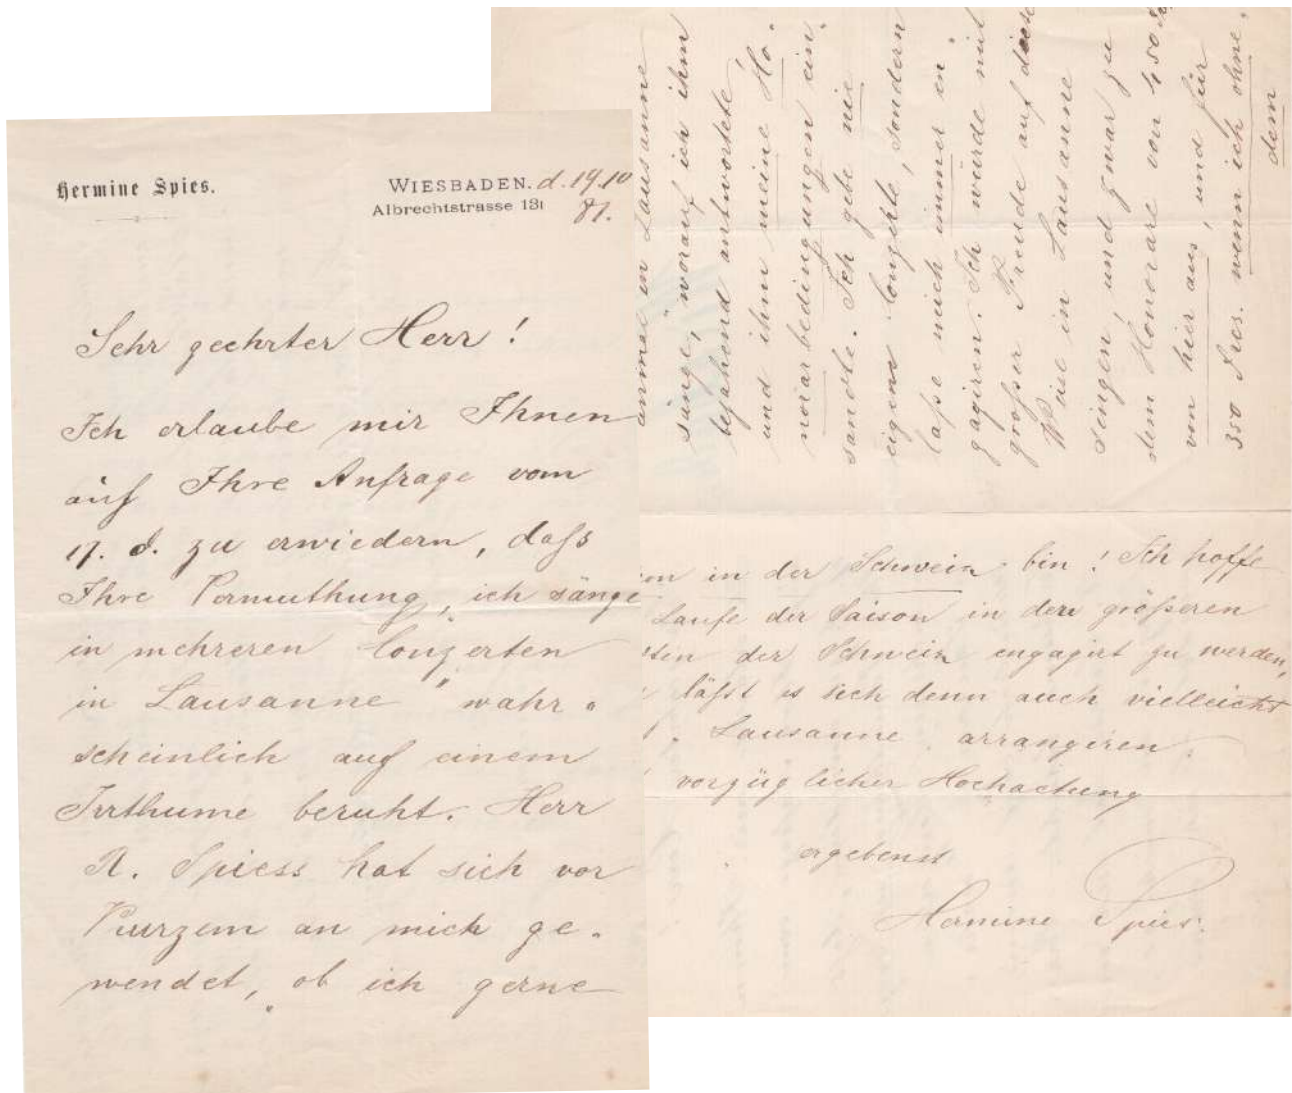 Hermine Spies.
WIESBADEN. d. 19.10
Albrechtstrasse 13I
87.
Sehr geehrter Herr!
Ich erlaube mir Ihnen
auf Ihre Anfrage vom
17. d. zu erwiedern, daß
Ihre Vermuthung, „ich sänge
in mehreren Conzerten
in Lausanne" wahr-
scheinlich auf einem
Irrthume beruht. Herr
R. Spiess hat sich vor
Kurzem an mich ge-
wendet, „ob ich gerne
einmal in Lausanne
sänge", worauf ich ihm
bejahend antwortete,
und ihm meine Ho-
norarbedingungen ein-
sandte. Ich gebe nie
eigene Conzerte, sondern
laße mich immer en-
gagiren. Ich würde mit
großer Freude auf diese
Weise in Lausanne
singen, und zwar zu
dem Honorare von 450
von hier aus, und für
350 Frcs. wenn ich ohne-
dem
in der Schweiz bin! Ich hoffe
Laufe der Saison in den größeren
der Schweiz engagirt zu werden,
läßt es sich denn auch vielleicht
Lausanne arrangiren.
vorzüglicher Hochachtung
ergebenst
Hermine Spies.